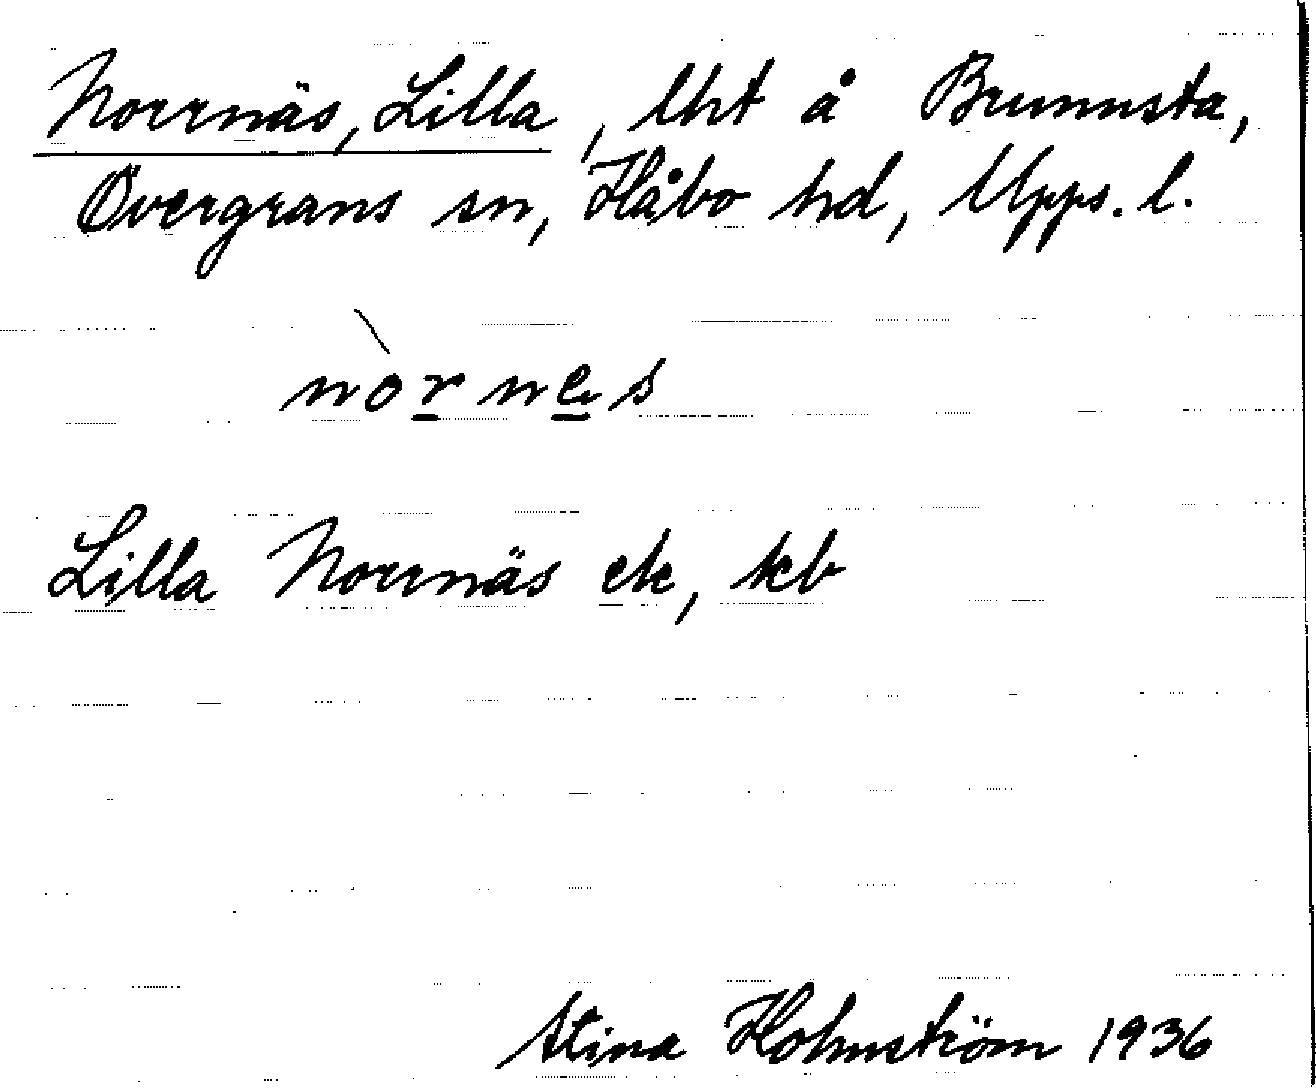 Norrnäs, Lilla, lht å Brunnsta,
Övergrans sn, Håbo hd, Upps. l.
nòrnes
Lilla Norrnäs ek, kb
Stina Holmström 1936